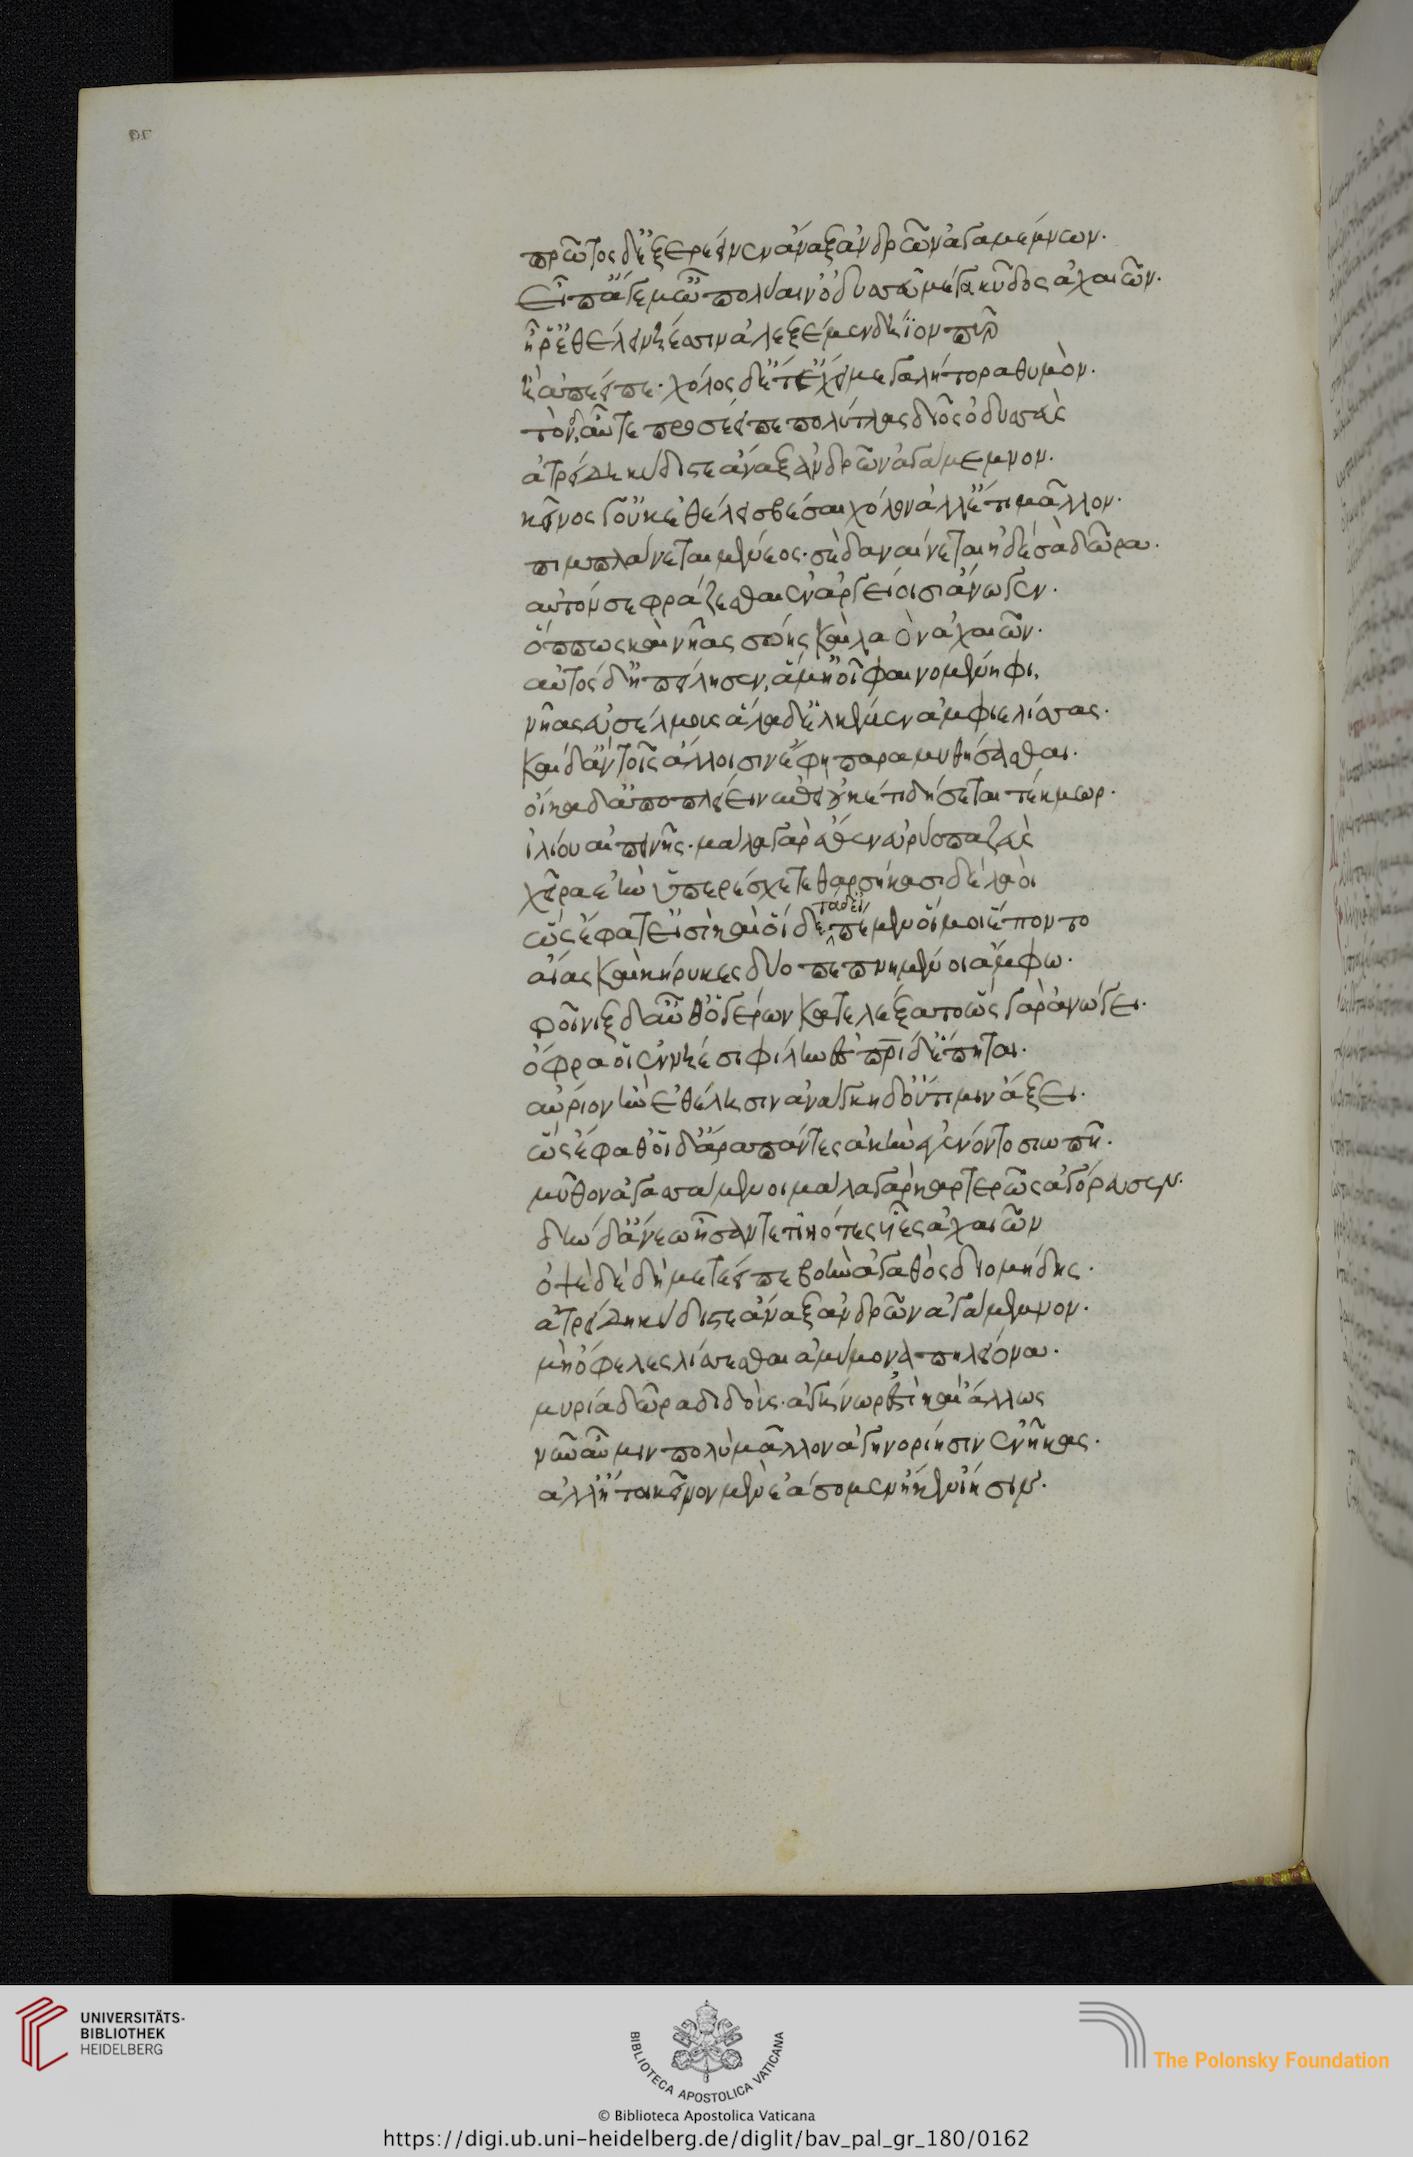 πρῶτος δ' ἐξερέεινεν ἄναξ ἀνδρῶν ἀγαμέμνων·
εἴπ' ἄγε μ' ὦ πολύαιν' ὀδυσεῦ μέγα κῦδος ἀχαιῶν·
ἤ ῥ' ἐθέλει νήεσσιν ἀλεξέμεναι δήϊον πῦρ
ἢ ἀπέειπε· χόλος δ' ἔτ' ἔχει μεγαλήτορα θυμὸν·
τὸν δ' αὖτε προσέειπε πολύτλας δῖος ὀδυσσεὺς
ἀτρείδη κύδιστε ἄναξ ἀνδρῶν ἀγάμεμνον·
κεῖνος γ' οὐκ ἐθέλει σβέσαι χόλον ἀλλ' ἔτι μᾶλλον·
πιμπλάνεται μένεος· σὲ δ' ἀναίνεται ἠδὲ σὰ δῶρα·
αὐτόν σε φράζεσθαι ἐν ἀργείοισι ἄνωγεν·
ὅππως κεν νῆας σόῃς καὶ λαὸν ἀχαιῶν·
αὐτὸς δ' ἠπείλησεν, ἅμ' ἠοῖ φαινομένηφι,
νῆας ἐυσέλμους ἅλαδ' ἑλκέμεν ἀμφιελίσσας·
καὶ δ' ἂν τοῖς ἄλλοισιν ἔφη παραμυθήσασθαι·
οἴκαδ' ἀποπλείειν ἐπεὶ οὐκέτι δήετε τέκμωρ·
ἰλίου αἰπεινῆς· μάλα γάρ ἑθεν εὐρύοπα ζεὺς
χεῖρα ἑὴν ὑπερέσχε τεθαρσήκασι δὲ λαοί
ὣς ἔφατ' εἰσὶ καὶ οἵδε τάδ' εἰπέμεν οἵ μοι ἕποντο
αἴας καὶ κήρυκες δύο πεπνυμένοι ἄμφω·
φοῖνιξ δ' αὖθ' ὁ γέρων κατελέξατο ὣς γὰρ ἀνώγει·
ὄφρα οἱ ἐν νήεσι φίλην ἐς πατρίδ' ἕπηται·
αὔριον ἢν ἐθέλησιν ἀνάγκη δ' οὔτι μιν ἄξει·
ὣς ἔφαθ' οἱ δ' ἄρα πάντες ἀκὴν ἐγένοντο σιωπῇ·
μῦθον ἀγασσάμενοι μάλα γὰρ κρατερῶς ἀγόρευσεν·
δὴν δ' ἄνεω ἦσαν τετιηότες υἷες ἀχαιῶν
ὀψὲ δὲ δὴ μετέειπε βοὴν ἀγαθὸς διομήδης·
ἀτρείδη κύδιστε ἄναξ ἀνδρῶν ἀγάμεμνον·
μὴ ὄφελες λίσσεσθαι ἀμύμονα πηλείωνα·
μυρία δῶρα διδούς· ἀγήνωρ ἐστὶ καὶ ἄλλως
νῦν αὖ μιν πολὺ μᾶλλον ἀγηνορίησιν ἐνῆκας·
ἀλλ' ἤτοι κεῖνον μὲν ἐάσομεν ἤ κεν ἴησιν·
UNIVERSITÄTS-
BIBLIOTHEK
HEIDELBERG
BIBLIOTECA APOSTOLICA VATICANA
The Polonsky Foundation
© Biblioteca Apostolica Vaticana
https://digi.ub.uni-heidelberg.de/diglit/bav_pal_gr_180/0162